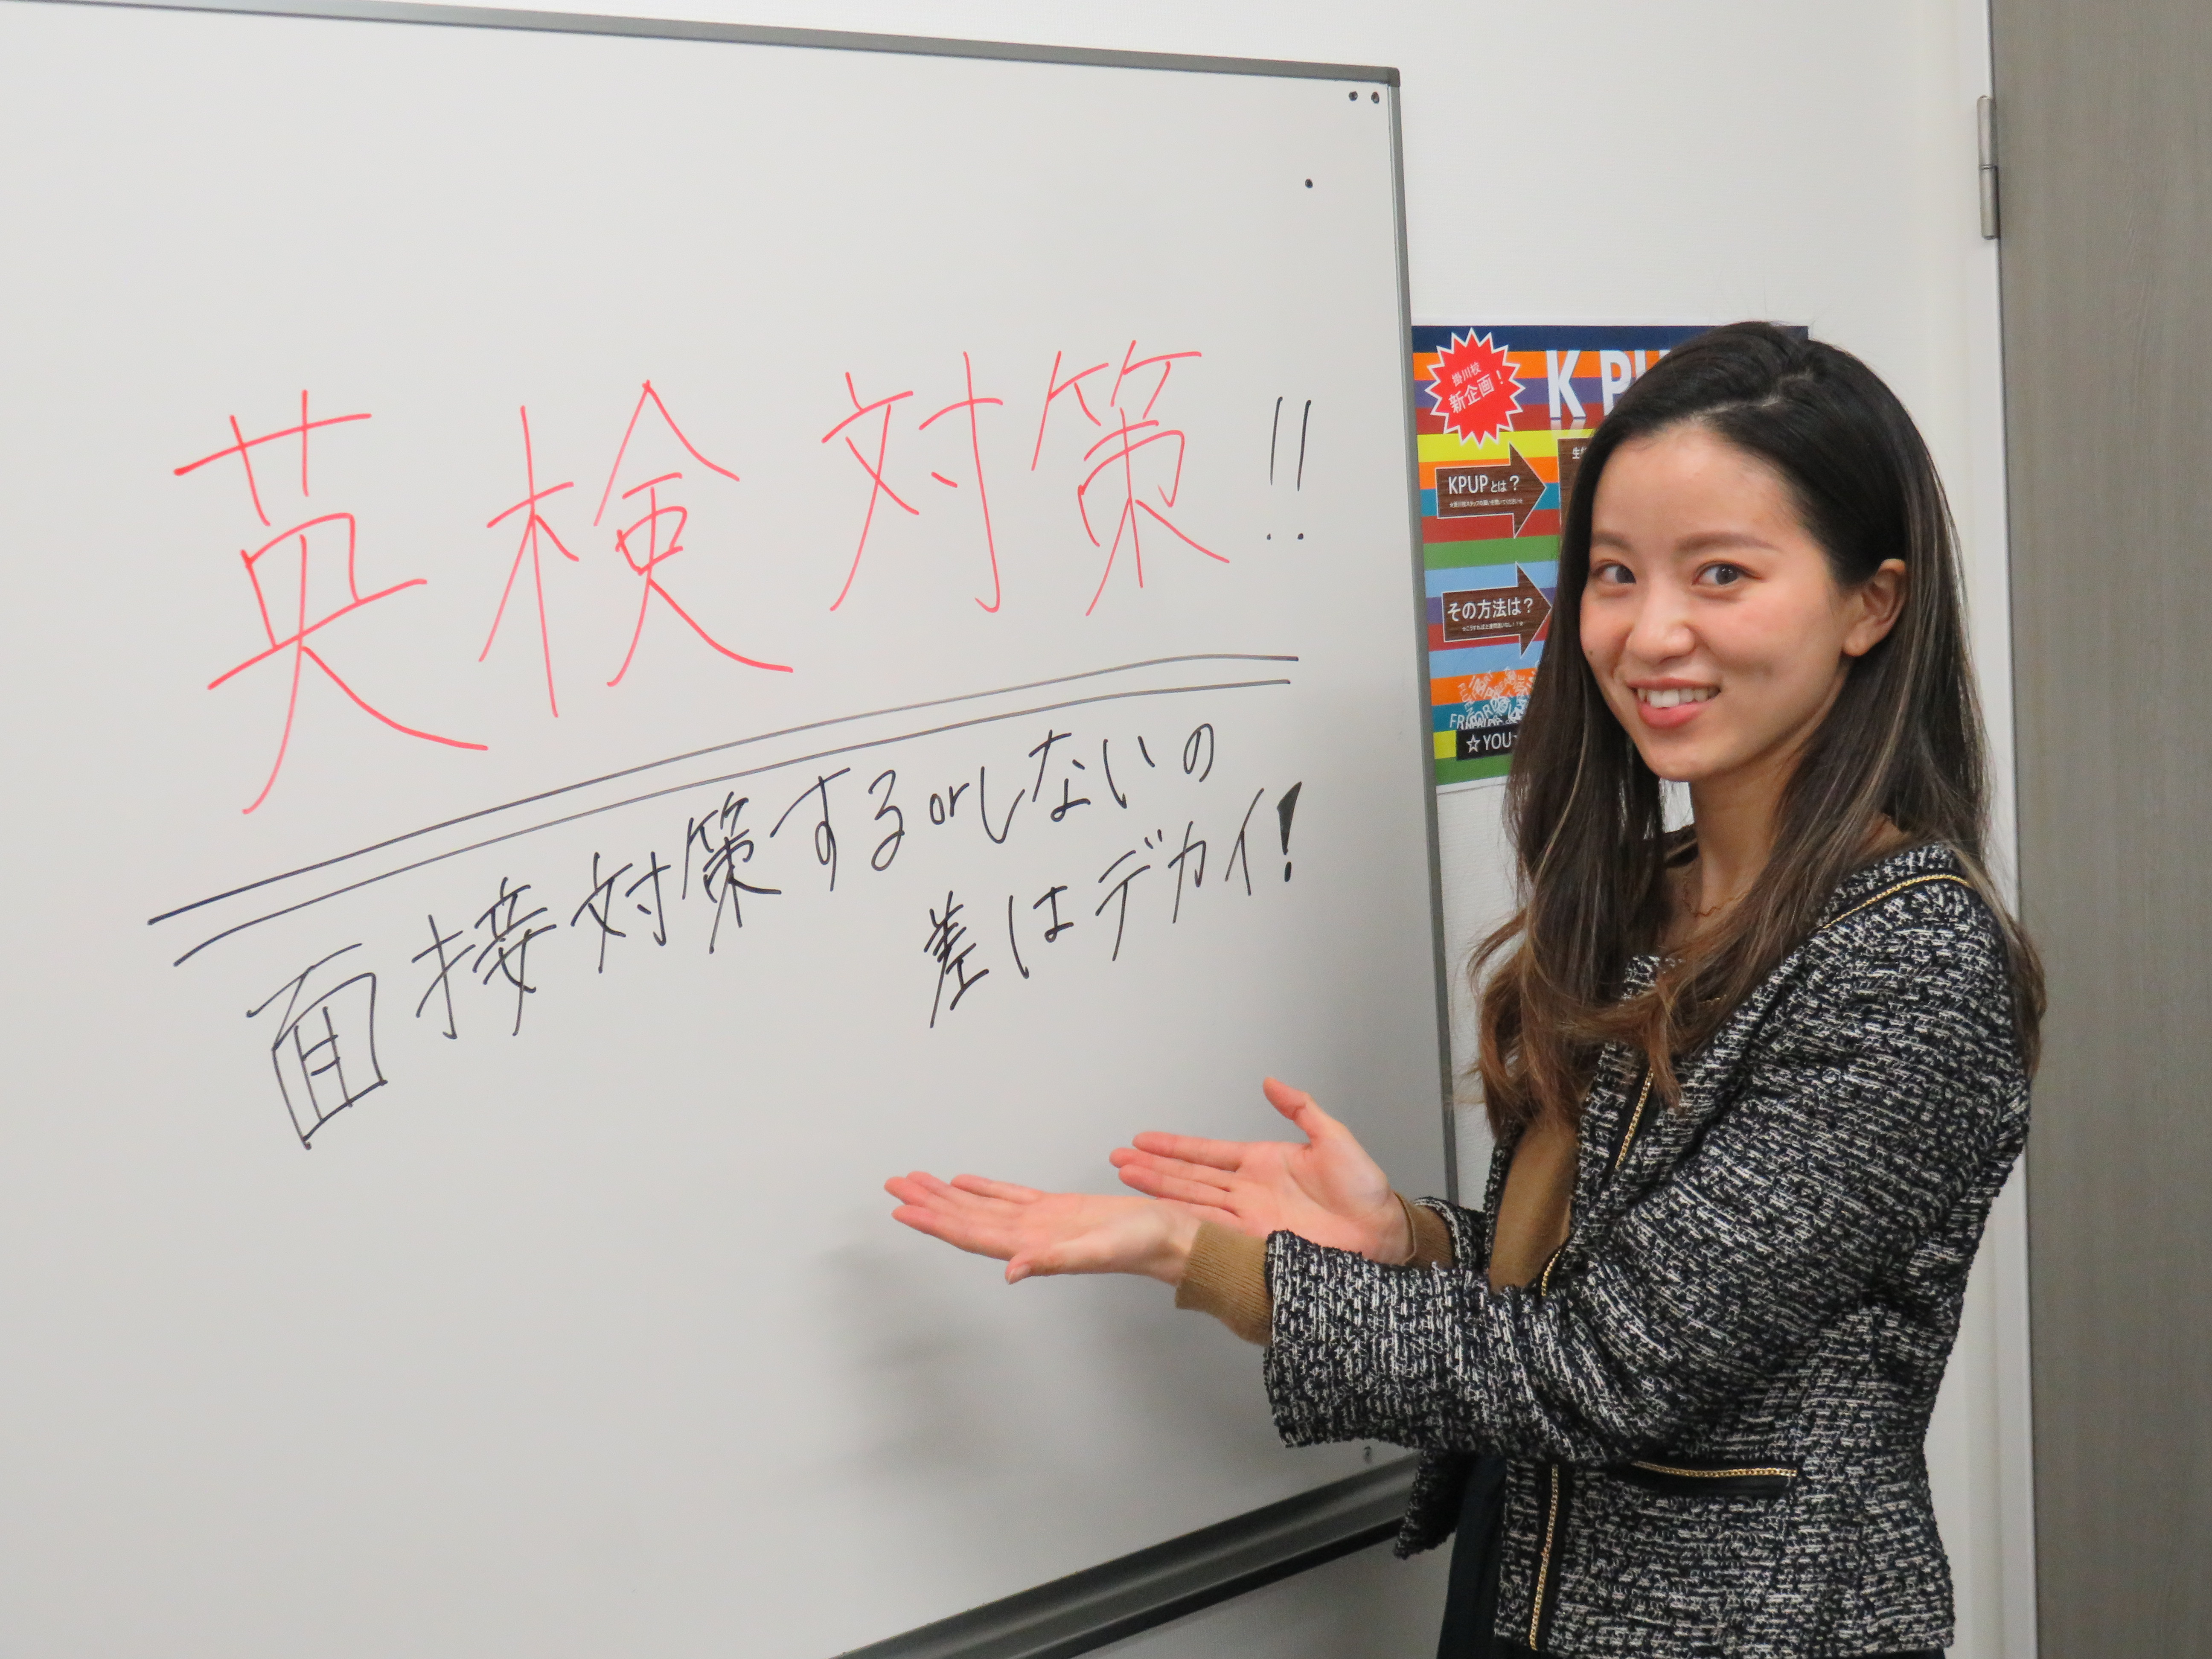 英検対策!!
面接対策するorしないの
差はデカイ!
掛川校
新企画!
KPU
KPUPとは?
その方法は?
☆YOU